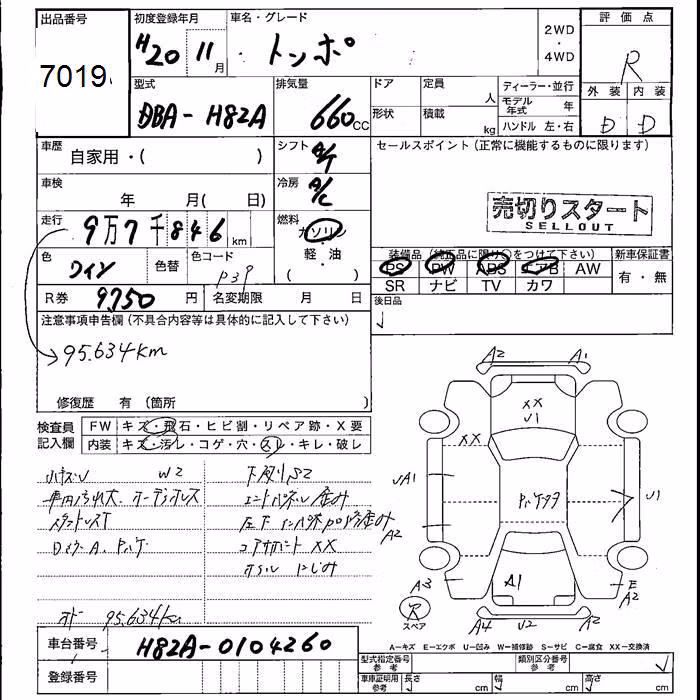 出品番号
7019
初度登録年月
H20 11月
車名・グレード
トッポ
2WD
・
4WD
評価点
R
外装 内装
D D
型式
DBA-H82A
排気量
660cc
ドア
形状
定員 人
積載 kg
ディーラー・並行
モデル年式 年
ハンドル 左・右
車歴
自家用・( )
シフト A/T
セールスポイント(正常に機能するものに限ります)
売切りスタート
SELLOUT
車検
年 月( 日)
冷房 A/C
走行
9万7千846km
燃料
ガソリン
・
軽・油
( )
色
ワイン
色替
色コード
P39
装備品(純正品に限り○をつけて下さい)
PS PW ABS エアB AW
SR ナビ TV カワ
新車保証書
有・無
R券 9,750円
名変期限 月 日
後日品
注意事項申告欄(不具合内容等は具体的に記入して下さい)
95.634km
修復歴 有 (箇所 )
検査員記入欄
FW キズ・飛石・ヒビ割・リペア跡・X要
内装 キズ・汚レ・コゲ・穴・スレ・キレ・破レ
小キズU W2
下廻りS2
車内汚れ大 オーディオレス
スタットレスT
コアサポートXX
オイルにじみ
95.634km
A2 A1
XX
U1
XX
UA1
A2
U1
A3
A1
E
A2
R
スペア
A4 U2 A2
A-キズ E-エクボ U-凹み W-補修跡 S-サビ C-腐食 XX-交換済
車台番号
H82A-0104260
登録番号
型式指定番号 参考
類別区分番号 参考
車庫証明用 参考
長さ cm 幅 cm 高さ cm